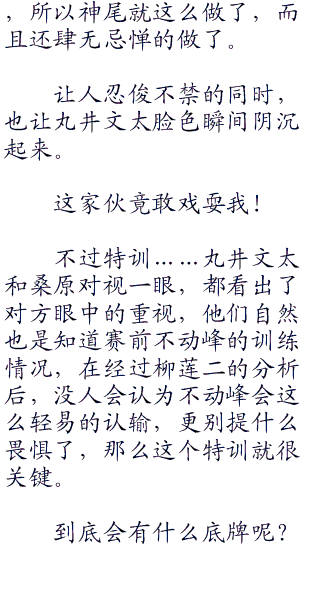 ，所以神尾就这么做了，而
且还肆无忌惮的做了。
让人忍俊不禁的同时，
也让丸井文太脸色瞬间阴沉
起来。
这家伙竟敢戏耍我！
不过特训……丸井文太
和桑原对视一眼，都看出了
对方眼中的重视，他们自然
也是知道赛前不动峰的训练
情况，在经过柳莲二的分析
后，没人会认为不动峰会这
么轻易的认输，更别提什么
畏惧了，那么这个特训就很
关键。
到底会有什么底牌呢？